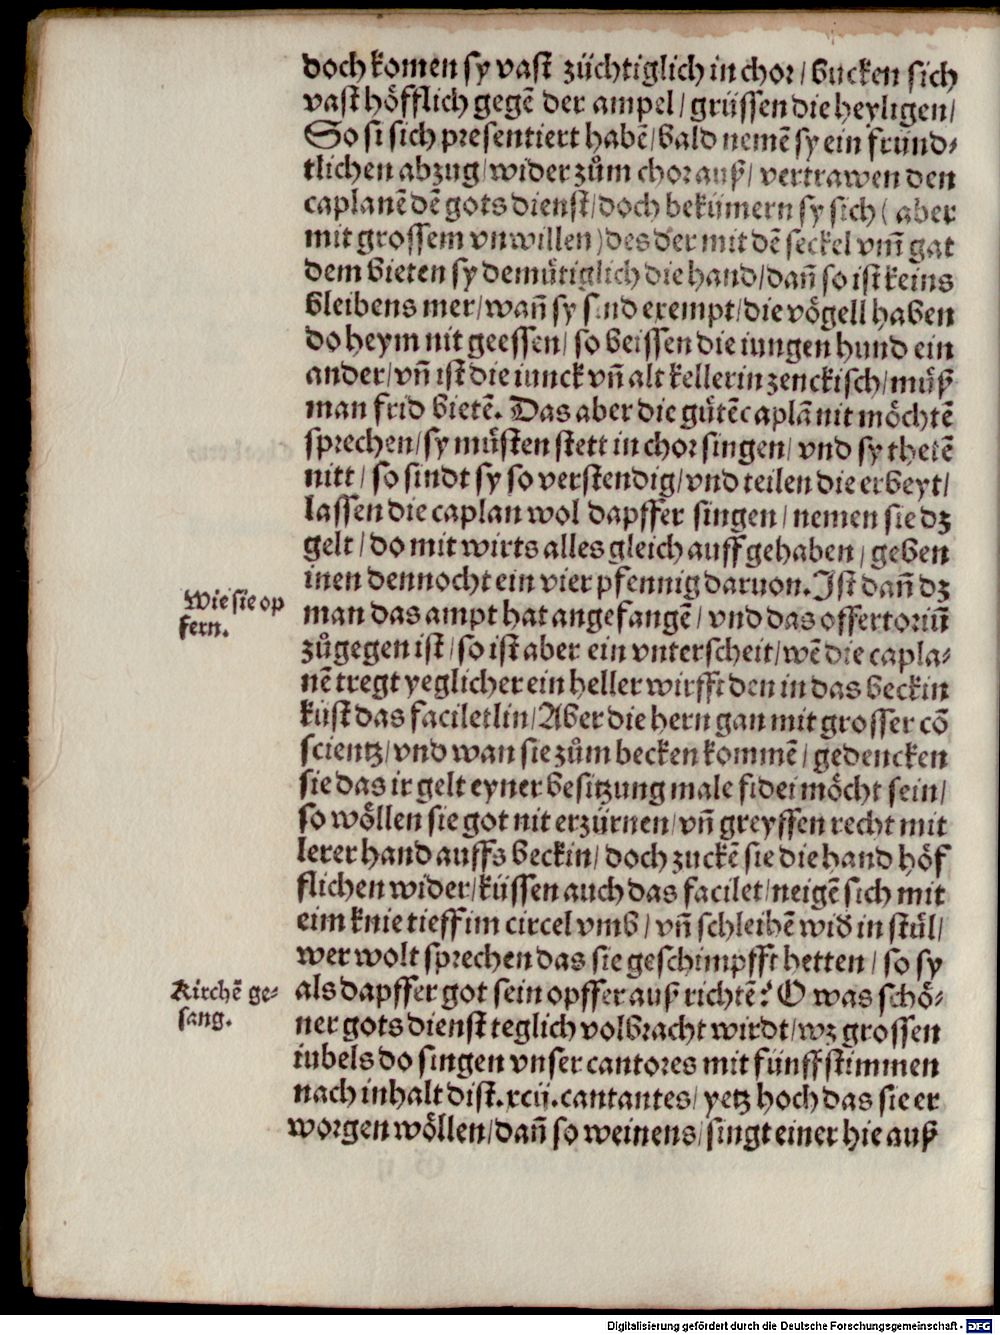 doch komen sy vast züchtiglich in chor / bucken sich
vast höfflich gegē der ampel / grüssen die heyligen /
So si sich presentiert habē / bald nemē sy ein fründ-
tlichen abzug / wider zům chor auß / vertrawen den
caplanē dē gots dienst / doch bekümern sy sich ( aber
mit grossem vnwillen ) des der mit dē seckel vm̄ gat
dem bieten sy demütiglich die hand / dañ so ist keins
bleibens mer / wañ sy sind exempt / die vögell haben
do heym nit geessen / so beissen die iungen hund ein
ander / vñ ist die iunck vñ alt kellerin zenckisch / müß
man frid bietē. Das aber die gütē caplā nit möchtē
sprechen / sy müsten stett in chor singen / vnd sy thetē
nitt / so sindt sy so verstendig / vnd teilen die erbeyt /
lassen die caplan wol dapffer singen / nemen sie dz
gelt / do mit wirts alles gleich auffgehaben / geben
inen dennocht ein vier pfennig daruon. Ist dañ dz
Wie sie op
fern.
man das ampt hat angefangē / vnd das offertoriū
zůgegen ist / so ist aber ein vnterscheit / wē die capla-
nē tregt yeglicher ein heller wirfft den in das beckin
küst das faciletlin / Aber die hern gan mit grosser cō
scientz / vnd wan sie zům becken kommē / gedencken
sie das ir gelt eyner besitzung male fidei möcht sein /
so wöllen sie got nit erzürnen / vñ greyffen recht mit
lerer hand auffs beckin / doch zuckē sie die hand höf
flichen wider / küssen auch das facilet / neigē sich mit
eim knie tieff im circel vmb / vñ schleihē wid̄ in stül /
wer wolt sprechen das sie geschimpfft hetten / so sy
Kirchē ge-
sang.
als dapffer got sein opffer auß richtē? O was schö-
ner gots dienst teglich volbracht wirdt / wz grossen
iubels do singen vnser cantores mit fünff stimmen
nach inhalt dist. xcij. cantantes / yetz hoch das sie er
worgen wöllen / dañ so weinens / singt einer hie auß
Digitalisierung gefördert durch die Deutsche Forschungsgemeinschaft - DFG